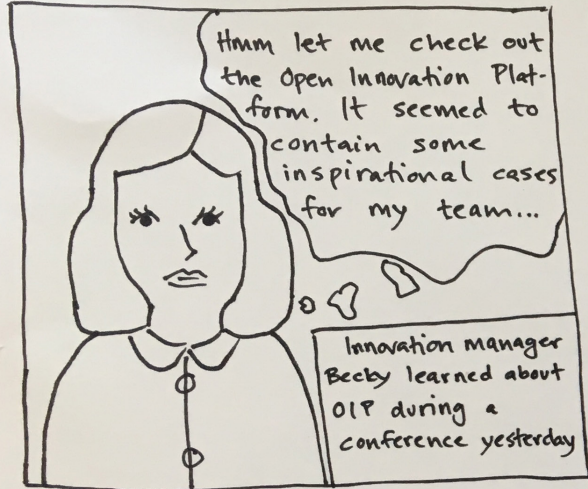 Hmm let me check out
the Open Innovation Plat-
form. It seemed to
contain some
inspirational cases
for my team...
Innovation manager
Becky learned about
OIP during a
conference yesterday